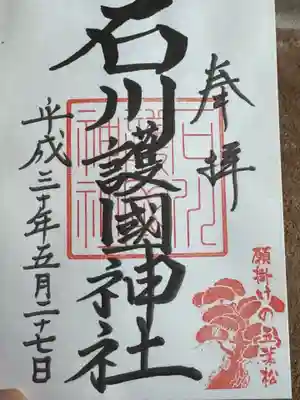 奉拝
石川護國神社
平成三十年五月二十七日
願掛けの五葉松